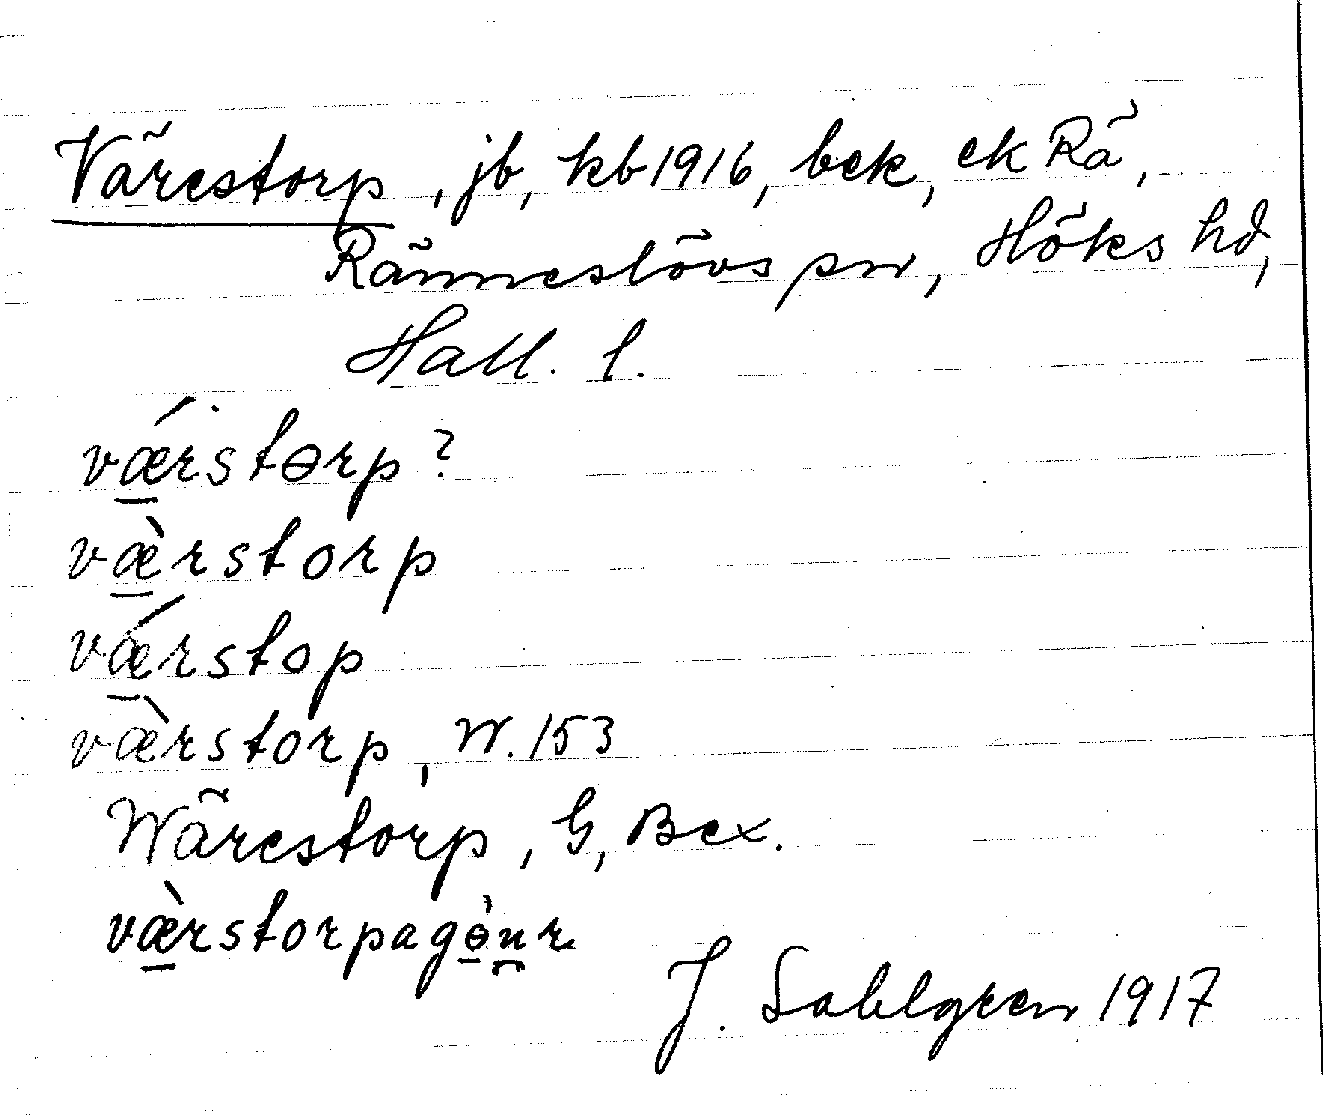 Värestorp, jb, kb 1916, bek, ek Rä,
Ränneslövs sn, Höks hd,
Hall. l.
vǽ̱rstɵrp?
væ̱̀rstorp
vǽ̱rstop
væ̀rstorp, W. 153
Wärestorp, G, Bex.
væ̱̀rstorpagɵ̱̀n̯r
J. Sahlgren 1917